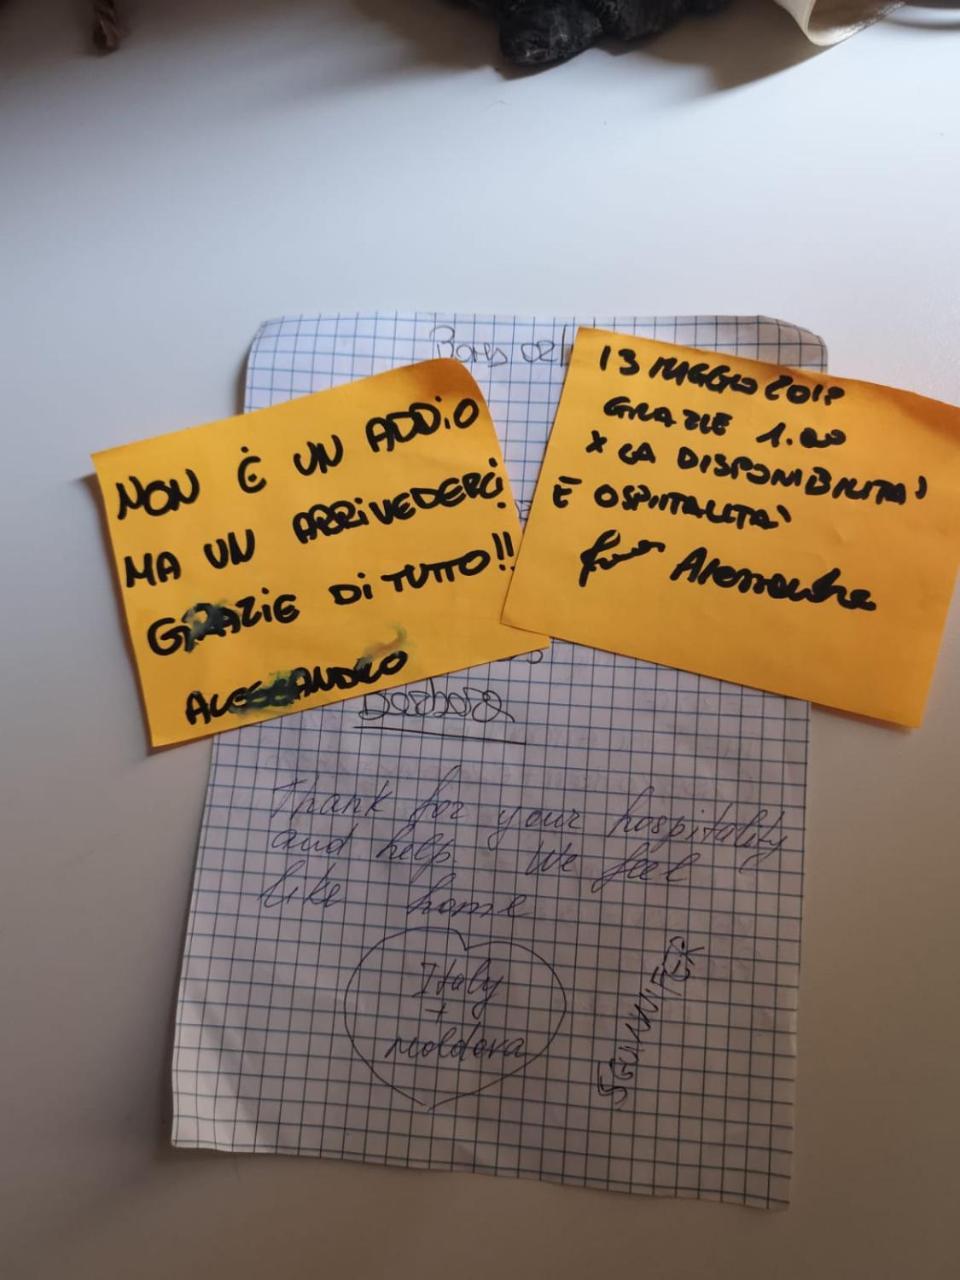 NON È UN ADDiO
MA UN ARRiVEDERCi
GRAZIE Di TUTTO!!
ALESSANDRO
13 MAGGIO
GRAZIE
X LA DISPONIBILITA'
E OSPITALITA'
Barbara
Thank for your hospitality
and help. We feel
like home
Italy
+
Moldova